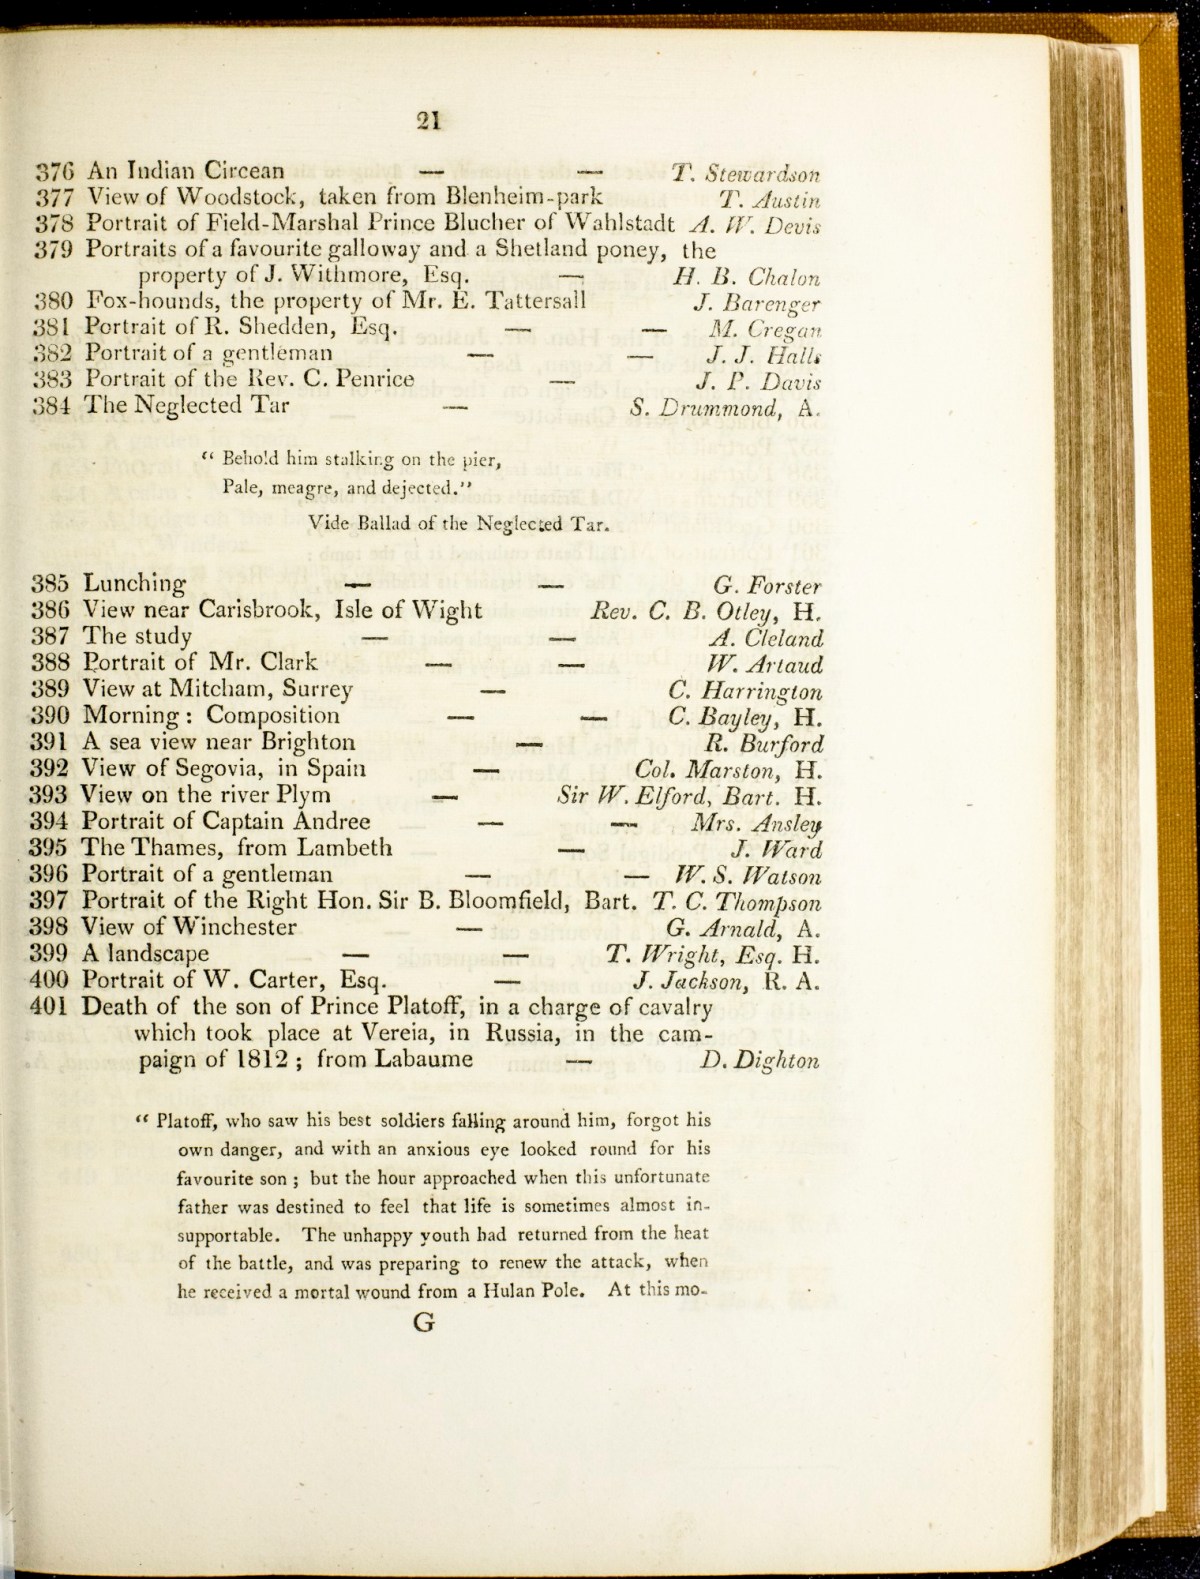 21
376 An Indian Circean — — T. Stewardson
377 View of Woodstock, taken from Blenheim-park T. Austin
378 Portrait of Field-Marshal Prince Blucher of Wahlstadt A. W. Devis
379 Portraits of a favourite galloway and a Shetland poney, the
property of J. Withmore, Esq. — H. B. Chalon
380 Fox-hounds, the property of Mr. E. Tattersall J. Barenger
381 Portrait of R. Shedden, Esq. — — M. Cregan
382 Portrait of a gentleman — — J. J. Halls
383 Portrait of the Rev. C. Penrice — J. P. Davis
384 The Neglected Tar — S. Drummond, A.
“ Behold him stalking on the pier,
Pale, meagre, and dejected.”
Vide Ballad of the Neglected Tar.
385 Lunching — — G. Forster
386 View near Carisbrook, Isle of Wight Rev. C. B. Otley, H.
387 The study — — A. Cleland
388 Portrait of Mr. Clark — — W. Artaud
389 View at Mitcham, Surrey — C. Harrington
390 Morning : Composition — — C. Bayley, H.
391 A sea view near Brighton — R. Burford
392 View of Segovia, in Spain — Col. Marston, H.
393 View on the river Plym — Sir W. Elford, Bart. H.
394 Portrait of Captain Andree — — Mrs. Ansley
395 The Thames, from Lambeth — J. Ward
396 Portrait of a gentleman — — W. S. Watson
397 Portrait of the Right Hon. Sir B. Bloomfield, Bart. T. C. Thompson
398 View of Winchester — G. Arnald, A.
399 A landscape — — T. Wright, Esq. H.
400 Portrait of W. Carter, Esq. — J. Jackson, R. A.
401 Death of the son of Prince Platoff, in a charge of cavalry
which took place at Vereia, in Russia, in the cam-
paign of 1812 ; from Labaume — D. Dighton
“ Platoff, who saw his best soldiers falling around him, forgot his
own danger, and with an anxious eye looked round for his
favourite son ; but the hour approached when this unfortunate
father was destined to feel that life is sometimes almost in-
supportable. The unhappy youth had returned from the heat
of the battle, and was preparing to renew the attack, when
he received a mortal wound from a Hulan Pole. At this mo-
G